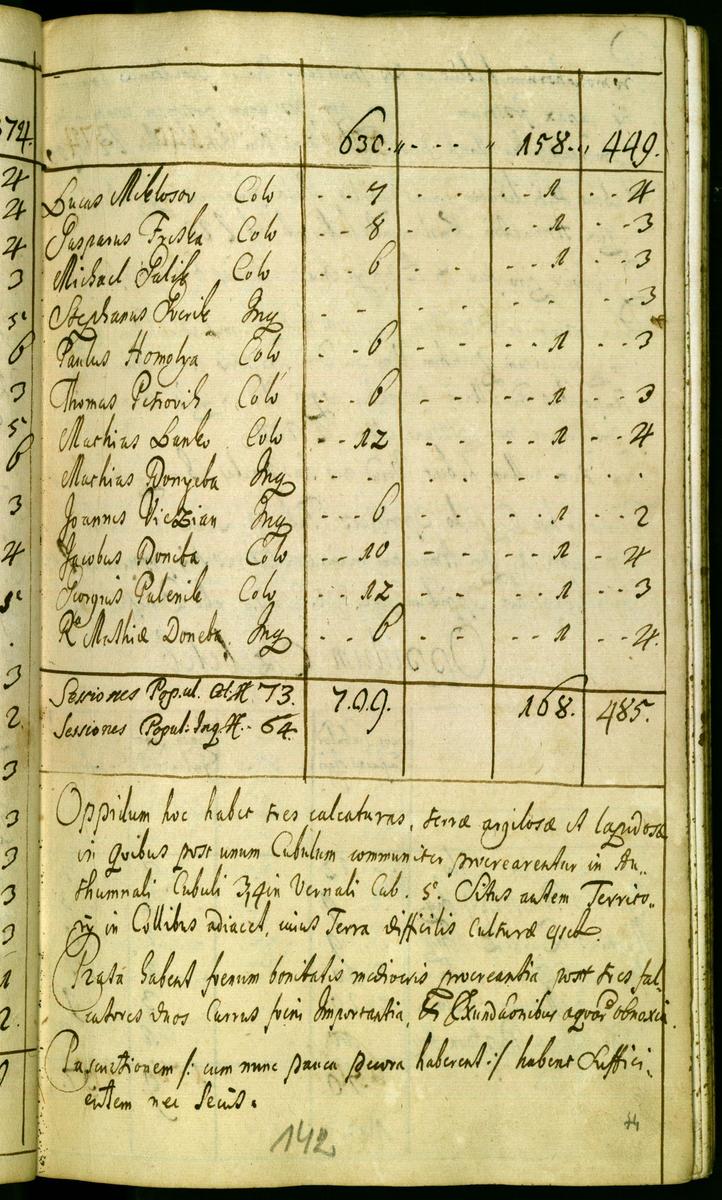 630. 158. 449.
Lucas Miklosov Colo 7 1 4
Gasparus Friska Colo 8 1 3
Michael Palik Colo 6 1 3
Stephanus Inq 3
Paulus Homolya Colo 6 1 3
Thomas Petrovih Colo 6 1 3
Mathias Lanko Colo 12 1 4
Mathias Donyeba Inq
Joannes Viczian Inq 6 1 2
Jacobus Doneba Colo 10 1 4
Georgius Palenik Colo 12 1 3
Ra Mathiæ Doneba Inq 6 1 4.
Sessiones Popul. Col. 73. 709. 168. 485.
Sessiones Popul. Inq. 64.
Oppidum hoc habet tres calcaturas, terræ argilosæ et lapidosæ
in quibus post unum Cubulum communiter procrearentur in Au„
thumnali Cubuli 3,4 in Vernali Cub. 5. Situs autem Territo„
rij in Collibus adiacet, cuius Terra difficilis culturæ esset.
Prata habent foenum bonitatis mediocris procreantia post tres fal„
catores duos Currus foeni Importantia, Et Exundaonibus aquar obnoxia.
Pascuationem /: cum nunc pauca pecora haberent :/ habent suffici„
entem nec secus.
142